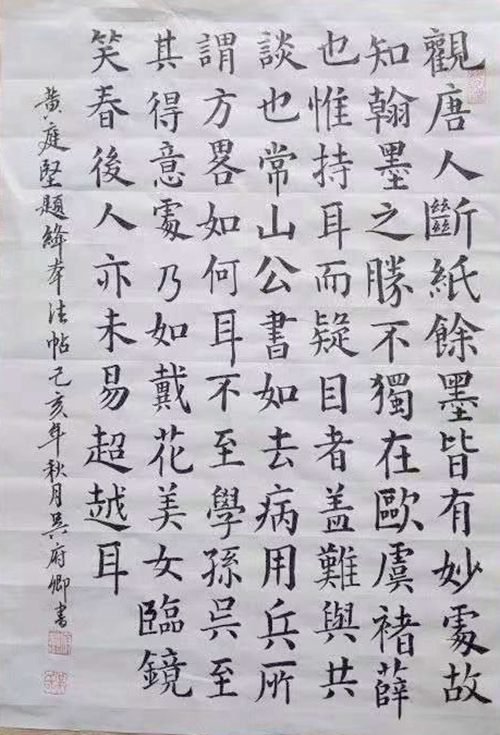 觀唐人斷紙餘墨皆有妙處故
知翰墨之勝不獨在歐虞褚薛
也惟持耳而疑目者盖難與共
談也常山公書如去病用兵所
謂方畧如何耳不至學孫吳至
其得意處乃如戴花美女臨鏡
笑春後人亦未易超越耳
黄庭堅題絳本法帖己亥年秋月吳府卿書